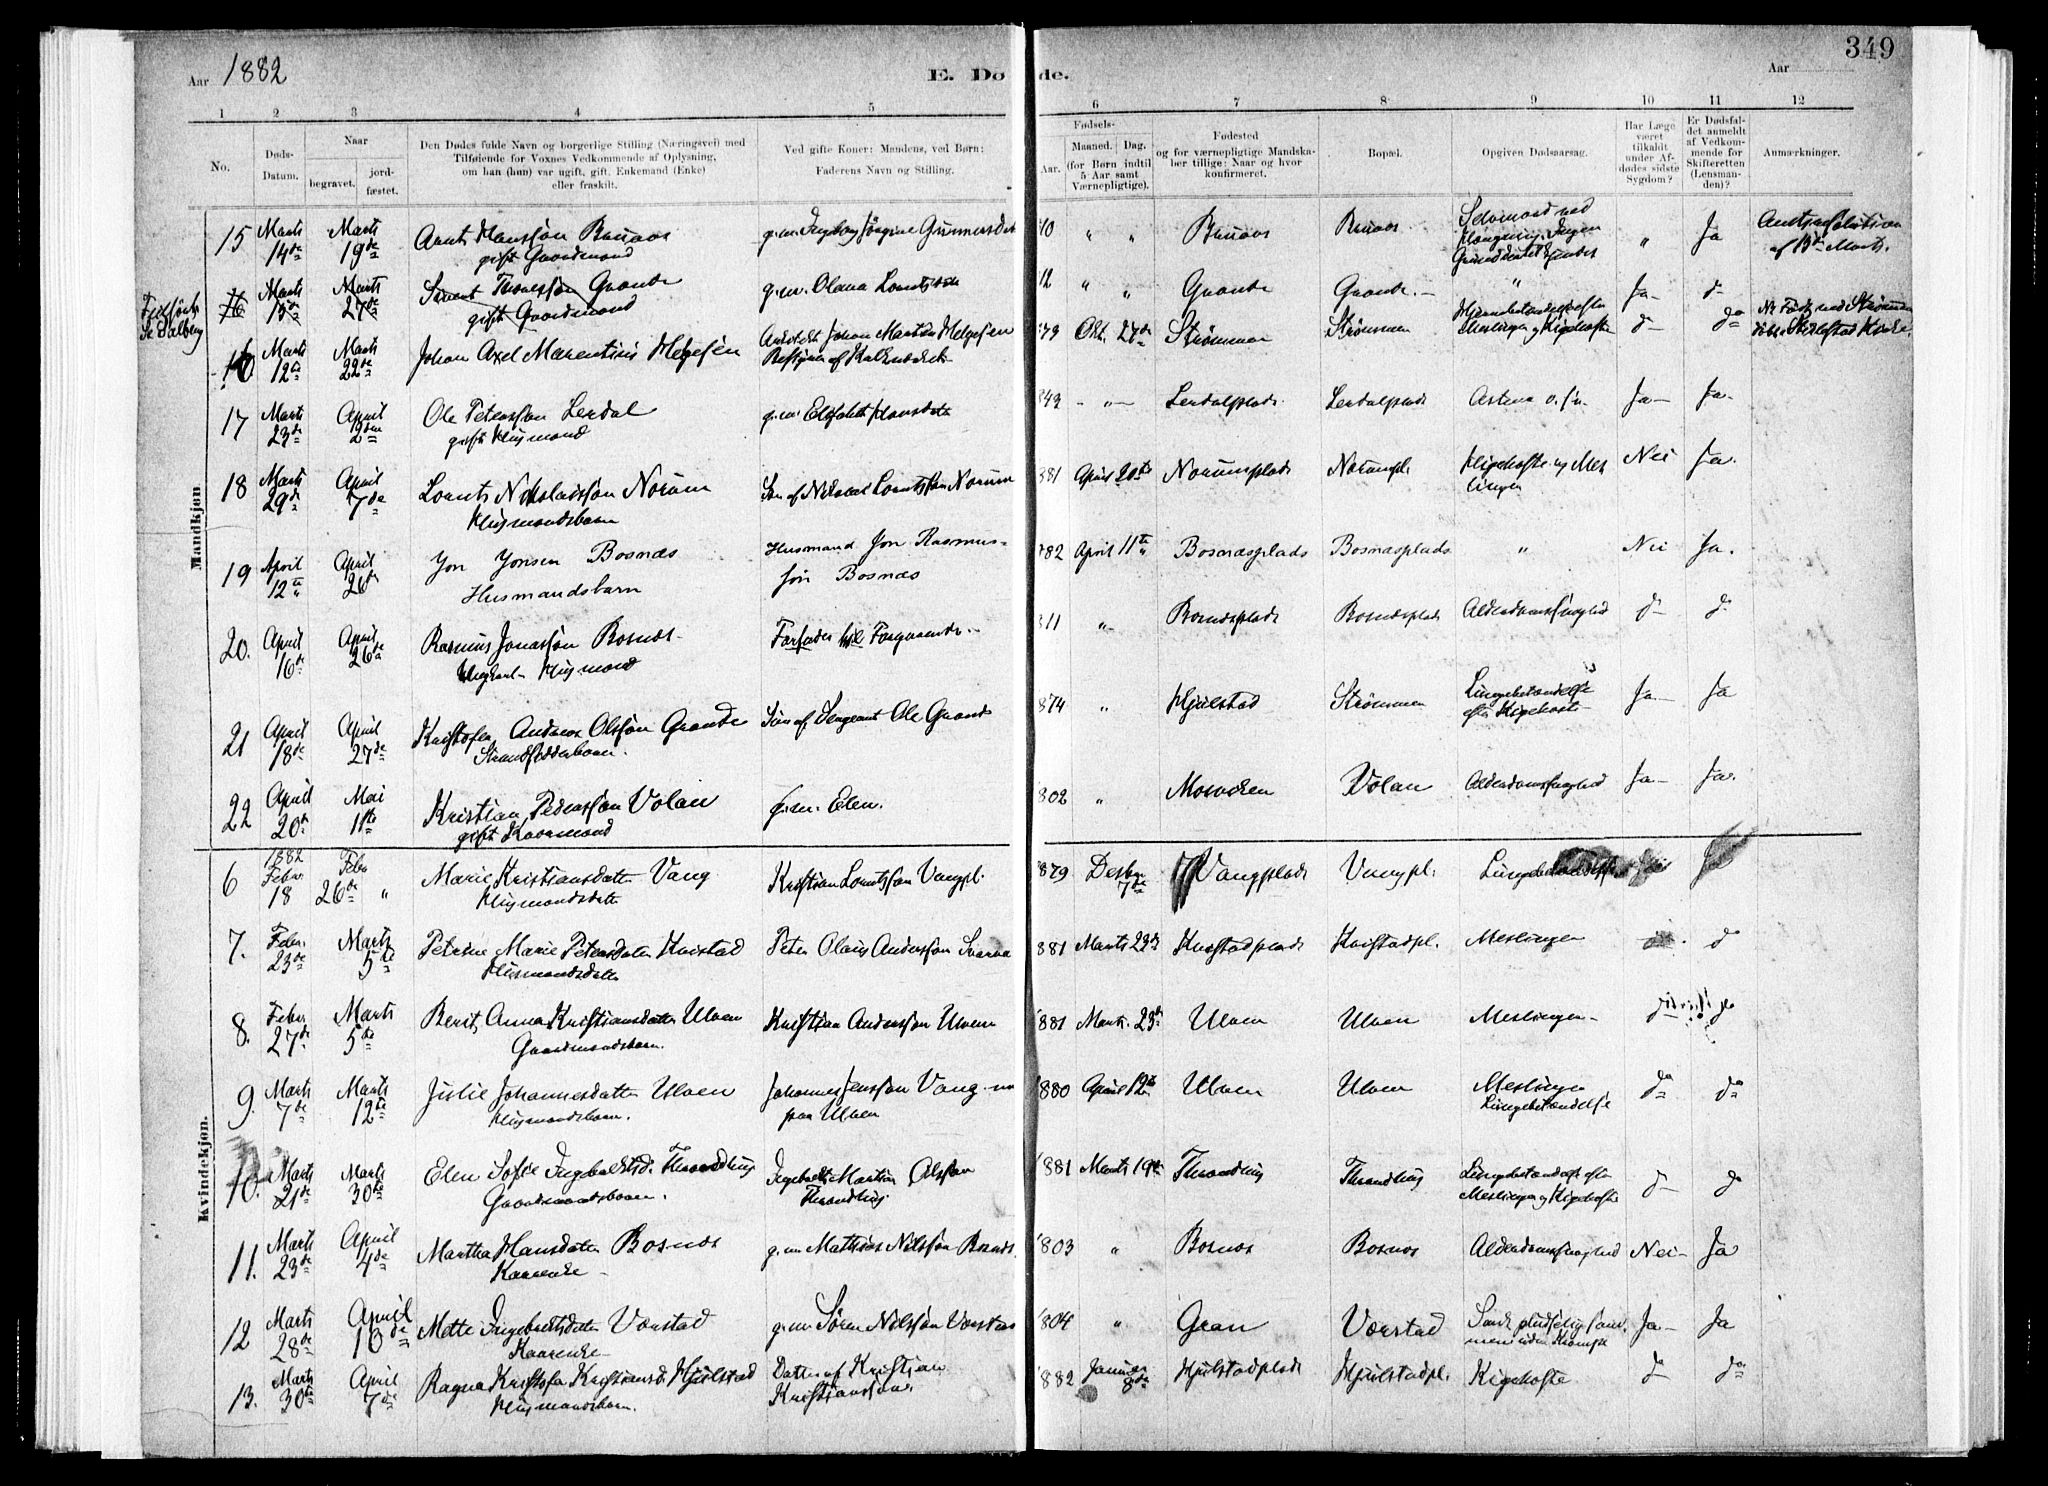 Aar 1882
E. Dø
de.
Aar
349
1 2 3 4 5 6 7 8 9 10 11 12
No.
Døds-
Datum.
Naar
begravet.
jord-
fæstet.
Den Dødes fulde Navn og borgerlige Stilling (Næringsvei) med
Tilføiende for Voxnes Vedkommende af Oplysning,
om han (hun) var ugift, gift, Enkemand (Enke)
eller fraskilt.
Ved gifte Koner: Mandens, ved Børn:
Faderens Navn og Stilling.
Fødsels-
Aar.
Maaned. Dag.
(for Børn indtil
5 Aar samt
Værnepligtige).
Fødested
og for værnepligtige Mandska-
ber tillige: Naar og hvor
konfirmeret.
Bopæl.
Opgiven Dødsaarsag.
Har Læge
været
tilkaldt
under Af-
dødes sidste
Sygdom?
Er Dødsfal-
det anmeldt
af Vedkom-
mende for
Skifteretten
(Lensman-
den)?
Anmærkninger.
Mandkjøn
15 Marts 14de Marts 19de Arnt Hansson
gift Gaardmand
Selvmord ved
Ja
16 Marts 13de Marts 27de Grande
gift Gaardmand
g. m. Olana
12 " " Grande Grande " Ja
16 Marts 12te Marts 22de Johan Axel Marentius Helgesen
Johan Martin Helgesen
79 Okt. 27de Strømmen Strømmen
Meslinger og Kighoste
17 Marts 23de April 2den Ole Peterssøn Lerdal
gift Husmand
g. m. Elisabeth Hansdatter
842 Lerdalsplads Lerdalsplads Ja Ja
18 Marts 29de April 7de Lornts Nikolaissøn Norum
Husmandsbarn
Søn af Nikolai Lorntssøn Norum
881 April 20de Norumsplads Norumpl. Kighoste og Mes
lingen
Nei Ja.
19 April 12te April 26de Jon Jonsen Bosnæs
Husmandsbarn
Husmand Jon Rasmus-
søn Bosnæs
82 April 11te Bosnæsplads Bosnæsplads " Nei Ja.
20. April 16de April 26de Rasmus Jonassøn Bosnæs
Husmand
Farfader til Foregaaende.
811 " Bosnæsplads Bosnæsplads Alderdomssvaghed do do
21 April 18de April 27de Kristofer Andreas Olssøn Grande
Strandsidderbarn.
Søn af Sergeant Ole Grande
874 " Hjulstad Strømmen Lungebetændelse
efter Kighoste
Ja Ja
22 April 20de Mai 11te Kristian Pederssøn Volan
gift Kaarmand
g. m. Elen.
802 " Mosviken Volan Alderdomssvaghed Ja Ja.
Kvindekjøn.
6 1882
Febr. 18 Febr 26de " Marie Kristiansdatter Vang
Husmandsdatter
Kristian Lorntssøn Vangpl.
879 Desbr. 7de Vangplads Vangpl. Ja
7. Febr. 23de Marts 5te Petrine Marie Petersdatter Kvistad
Husmandsdatter
Peter Olaus Anderssøn
881 Marts 23de Kvistadplads Kvistadpl. Meslinger do
8. Febr. 27de Marts 5te Berit Anna Kristiansdatter Ulven
Gaardmandsbarn.
Kristian Anderssøn Ulven
881 Marts 23de Ulven Ulven Meslinger do
9. Marts 7de Marts 12te Julie Johannesdatter Ulven
Husmandsbarn.
Johannes Jenssøn Vang
paa Ulven
880 April 12te Ulven Ulven Meslinger
Lungebetændelse
do do
10. Marts 21de Marts 30te Elen Sofie Ingebretsd. Thrandhus
Gaardmandsbarn.
Ingebrekt Martin Olssøn
Thrandhus
881 Marts 19de Thrandhus Thrandhus Lungebetændelse efter
Meslinger og Kighoste
do do
11. Marts 23de April 4de Martha Hansdatter Bosnæs
Kaarenke
g. m. Mathias Nilssøn Bosnæs
803 " Bosnæs Bosnæs Alderdomssvaghed Nei Ja
12 Marts 28de April 10de Mette Ingebretsdatter Værstad
Kaarenke
g. m. Søren Nilssøn Værstad
804 " Gran Værstad Sank pludselig sam
men uden Krampe
Ja Ja
13. Marts 30te April 7de Ragna Kristofa Kristiansd. Hjulstad
Husmandsbarn.
Datter af Kristian
Kristianssøn.
882 Januar 8de Hjulstadplads Hjulstadpl. Kighoste do do